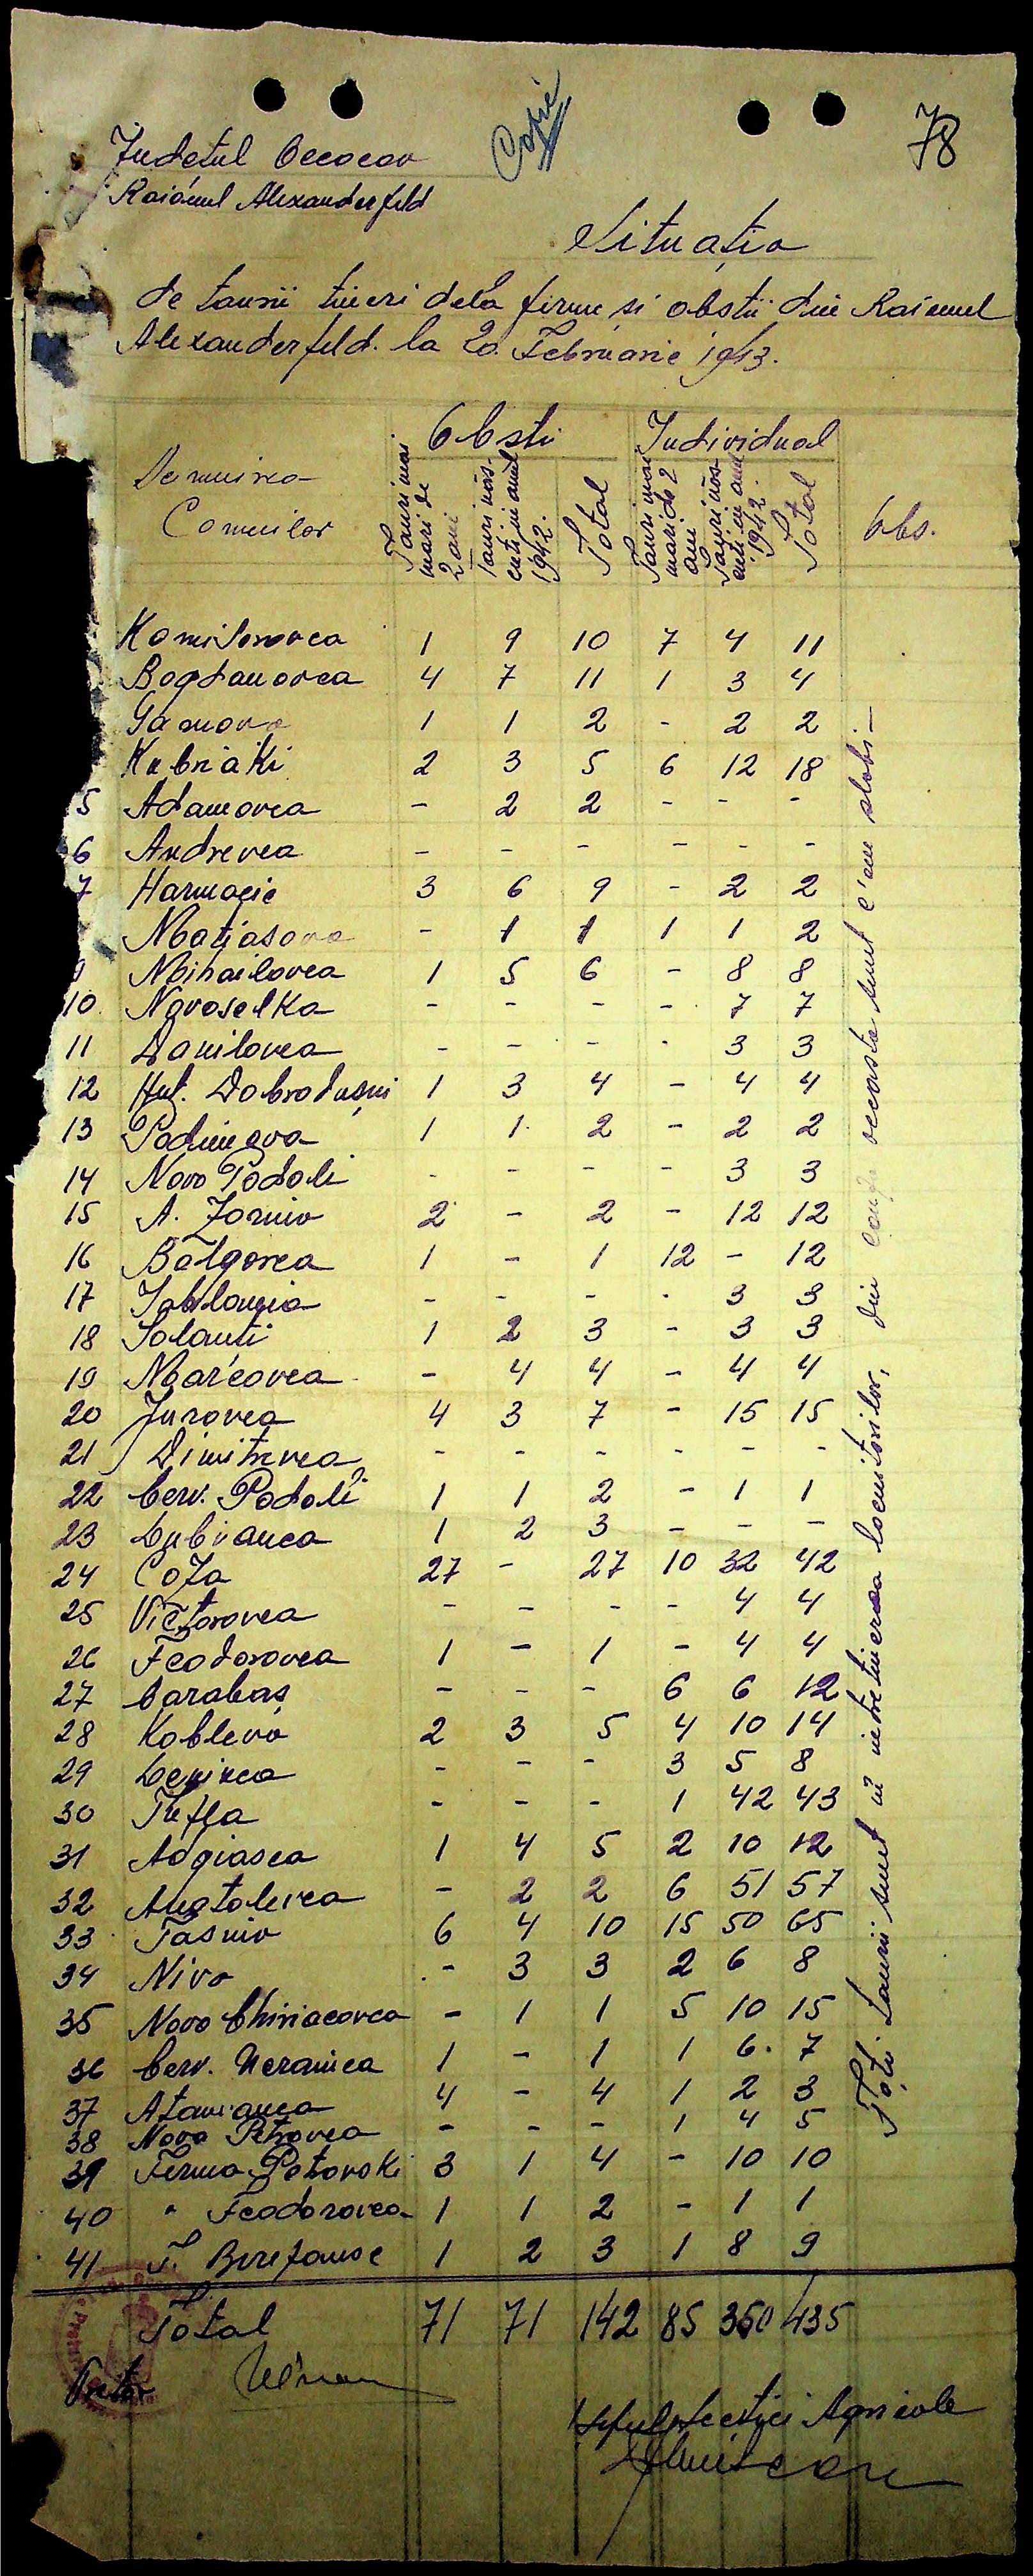 Copie
78
Judetul Occocov
Raionul Alexanderfeld
Situația
de taurii tineri dela ferme si obstii din Raionul
Alexanderfeld. la 20. Februarie 1943.
Obsti Individual
Denumirea Comunilor Tauri mai mari de 2 ani Tauri născuti in anul 1942. Total Tauri mai mari de 2 ani Tauri născuti in anul 1942. Total Obs.
Komisorovca 1 9 10 7 4 11
Bogdanovca 4 7 11 1 3 4
Gamova 1 1 2 - 2 2
Kubriaki 2 3 5 6 12 18
5 Adamovca - 2 2 - - -
6 Andrevca - - - - - -
7 Harmagie 3 6 9 - 2 2
Matiasova - 1 1 1 1 2
9 Mihailovca 1 5 6 - 8 8
10. Novoselka - - - - 7 7
11 Danilovca - - - - 3 3
12 Hut. Dobrodușni 1 3 4 - 4 4
13 1 1 2 - 2 2
14 Novo Podoli - - - - 3 3
15 A. Zornio 2 - 2 - 12 12
16 Bolgarca 1 - 1 12 - 12
17 - - - - 3 3
18 Solonti 1 2 3 - 3 3
19 Marcovca - 4 4 - 4 4
20 Jurovca 4 3 7 - 15 15
21 Dimitrevca - - - - - -
22 Cerv. Podoli 1 1 2 - 1 1
23 Lubianca 1 2 3 - - -
24 Coza 27 - 27 10 32 42
25 Victorovca - - - - 4 4
26 Feodorovca 1 - 1 - 4 4
27 Carabas - - - 6 6 12
28 Koblevo 2 3 5 4 10 14
29 Leninca - - - 3 5 8
30 Tufla - - - 1 42 43
31 Adgiasca 1 4 5 2 10 12
32 Anatolievca - 2 2 6 51 57
33 Tasnio 6 4 10 15 50 65
34 Nivo - 3 3 2 6 8
35 Novo Chiriacovca - 1 1 5 10 15
36 Cerv. Ucrainca 1 - 1 1 6. 7
37 Atamanca 4 - 4 1 2 3
38 Novo Petrovca - - - 1 4 5
39 Ferma Petrovski 3 1 4 - 10 10
40 " Feodorovca 1 1 2 - 1 1
41 F. Berezanse 1 2 3 1 8 9
Toti taurii sunt in intretinerea locuitorilor, din cauza aceasta sunt c'am slabi —
Total 71 71 142 85 350 435
Pretor
Șeful Sectiei Agricole